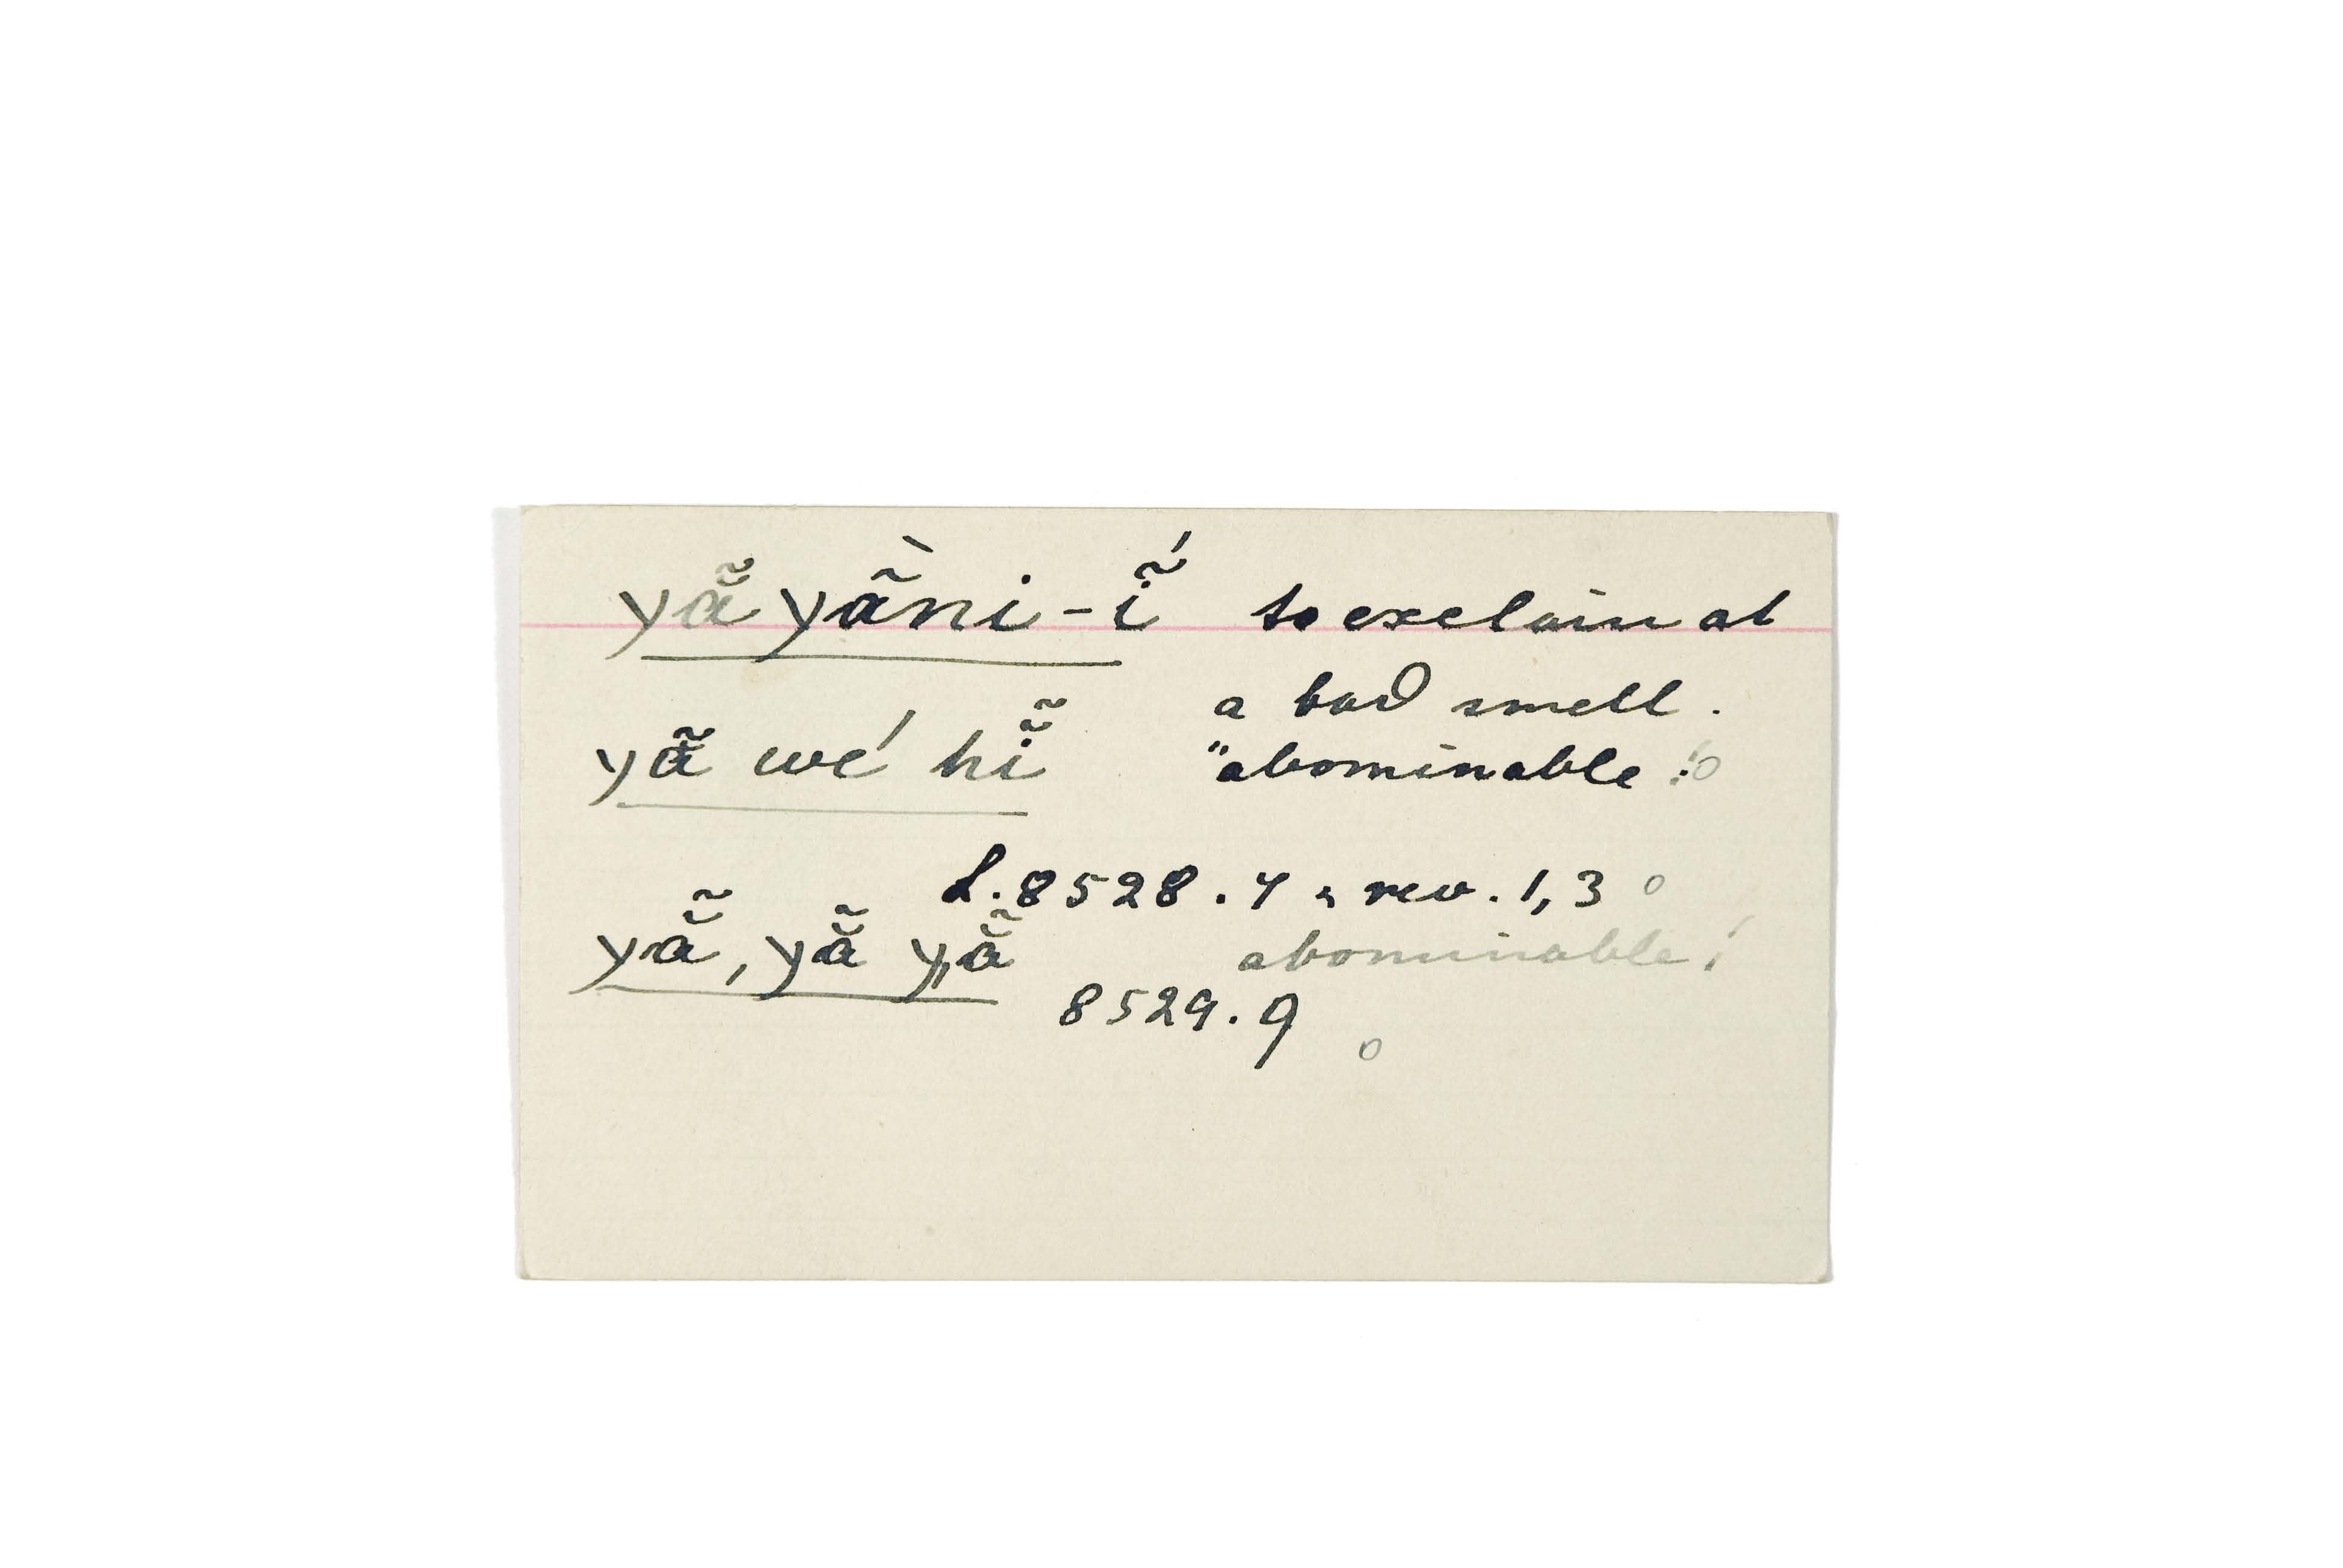 yã̆ yã̀ni-ĩ́ to exclaim at
a bad smell.
yã̆ wé hĩ̆ "abominable!
L.8528.4, rev. 1,3
yã̆, yã̆ yã̆ abominable!
8529.9